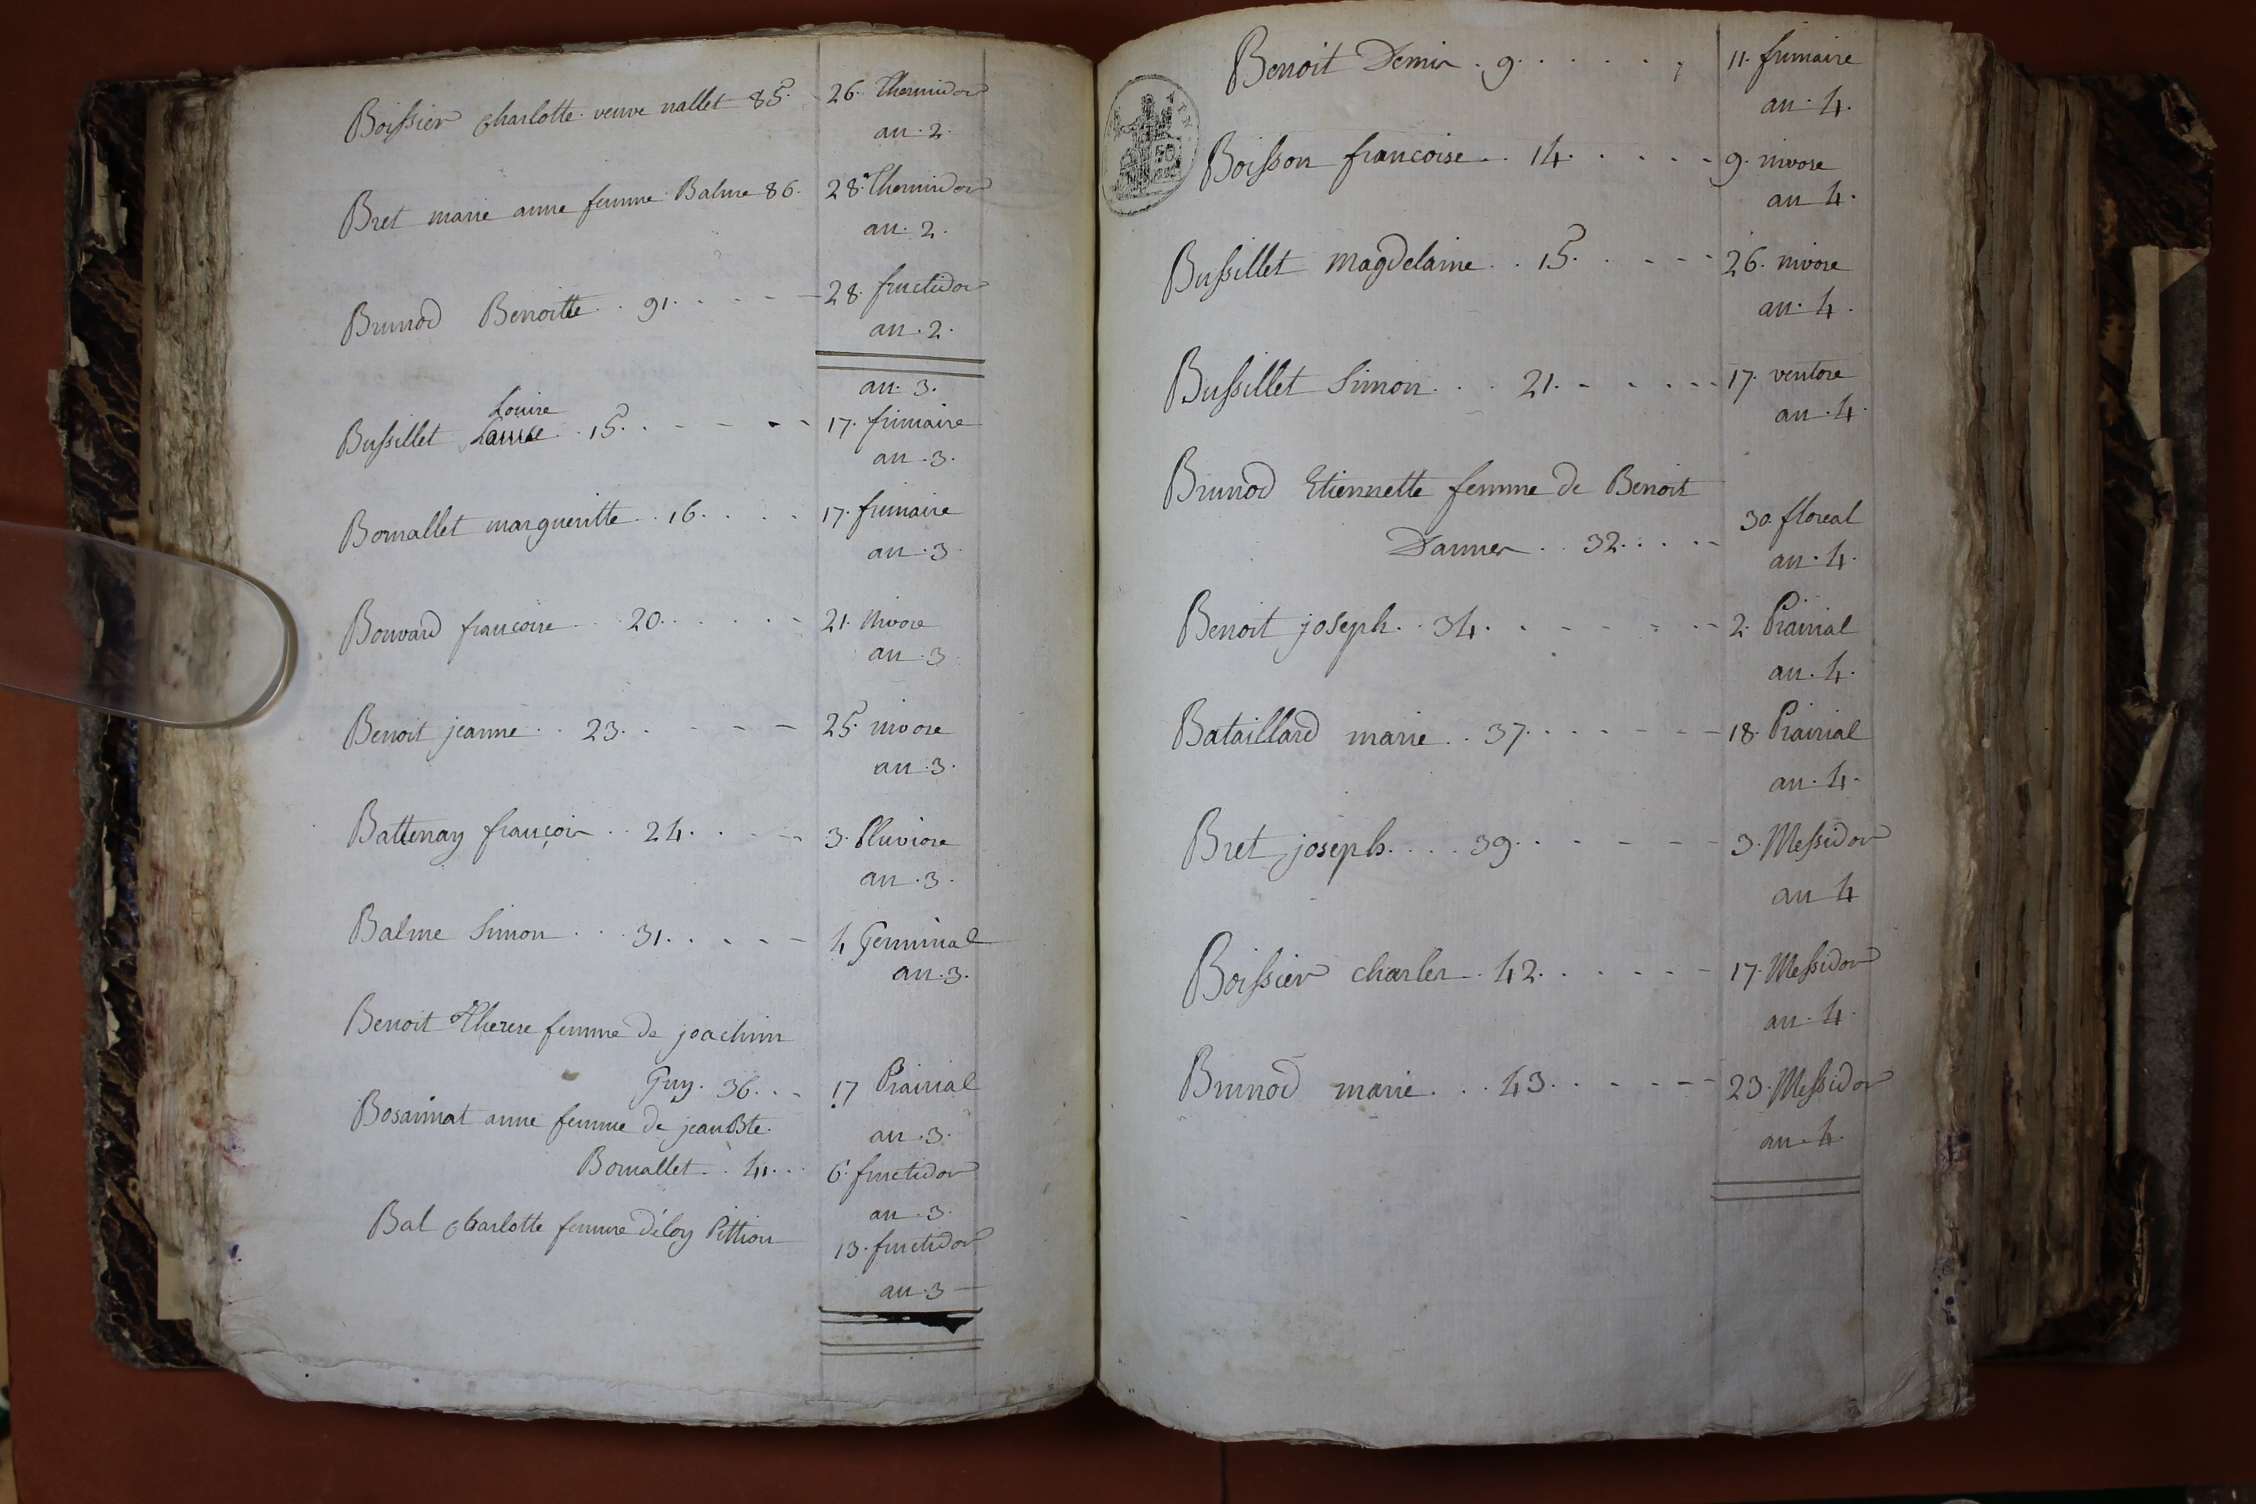 Boissier charlotte veuve nallet 85. 26. Thermidor
an. 2.
Bret marie anne femme Balme 86. 28. Thermidor
an. 2.
Brunod Benoitte. . 91. . . . . 28. fructidor
an. 2.
an. 3.
Louise
Bussillet 15. . . . . 17. frimaire
an. 3.
Bornallet margueritte. . 16. . . . 17. frimaire
an. 3.
Bouvard francoise. . . 20. . . . . . 21. Nivose
an. 3.
Benoit jeanne. . 23. . . . . 25. nivose
an. 3.
Battenay françois. . 24. . . . 3. Pluviose
an. 3.
Balme Simon . . . 31. . . . . 4 Germinal
an. 3.
Benoit Therese femme de joachim
Guy. 36. . . 17 Prairial
an. 3.
anne femme de jean Bte.
Bornallet. . 41. . . 6. fructidor
an. 3.
Bal charlotte femme d'éloy Pittion 13. fructidor
an. 3
50
Benoit Denis . 9. . . . . . 11. frimaire
an. 4.
Boisson francoise. . 14. . . . . 9. nivose
an 4.
Bussillet magdelaine. . 15. . . . . 26. nivose
an. 4.
Bussillet Simon. . . 21. . . . . 17. ventose
an. 4.
Brunod Etiennette femme de Benoit
Danner . . 32. . . . 30. floreal
an. 4.
Benoit joseph. . 34. . . . . . . 2. Prairial
an. 4.
Bataillard marie. . 37. . . . . . 18. Prairial
an. 4.
Bret joseph. . . . 39. . . . . . 3. Messidor
an 4
Boissier charles. 42. . . . . . 17. Messidor
an. 4.
Brunod marie. . . 43. . . . . . 23. Messidor
an. 4.